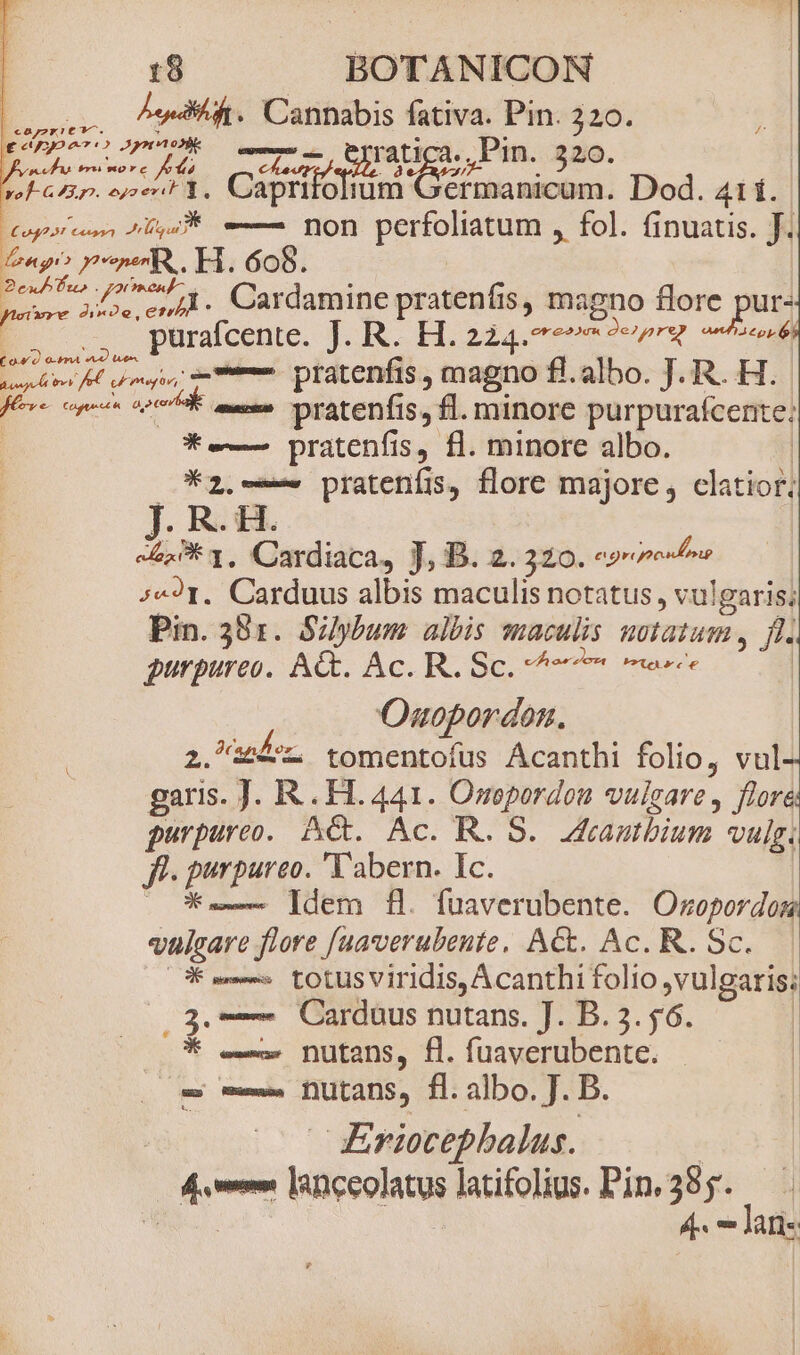 18 BOTANICON
Cannabis ſativa. Pin. 320.
—— erratica. Pin. 320.
1. Caprifolium Germanicum. Dod. 411.
* —— non perfoliatum, fol. ſinuatis. J.
R. H. 608.
1. Cardamine pratenſis, magno flore pur-
puraſcente. J. R. H. 224.
—— pratenſis, magno fl. albo. J. R. H.
—— pratenſis, fl. minore purpuraſcente.
* —— pratenſis, fl. minore albo.
* 2. —— pratenſis, flore majore, elatior.
J. R. H.
* 1. Cardiaca, J, B. 2. 320.
1. Carduus albis maculis notatus, vulgaris.
Pin. 381. Silybum albis maculis notatum, fl.
purpureo. Act. Ac. R. Sc.
Onopordon.
2. tomentoſus Acanthi folio, vul-
garis. J. R. H. 441. Onopordon vulgare, flore
purpureo. Act. Ac. R. S. Acanthium vulg.
fl. purpureo. Tabern. Ic.
* —— Idem fl. ſuaverubente. Onopordon
vulgare flore ſuaverubente. Act. Ac. R. Sc.
* —— totus viridis, Acanthi folio, vulgaris.
3. —— Carduus nutans. J. B. 3. 56.
* —— nutans, fl. ſuaverubente.
— —— nutans, fl. albo. J. B.
Eriocephalus.
4. —— lanceolatus latifolius. Pin. 385.
4. — lan-